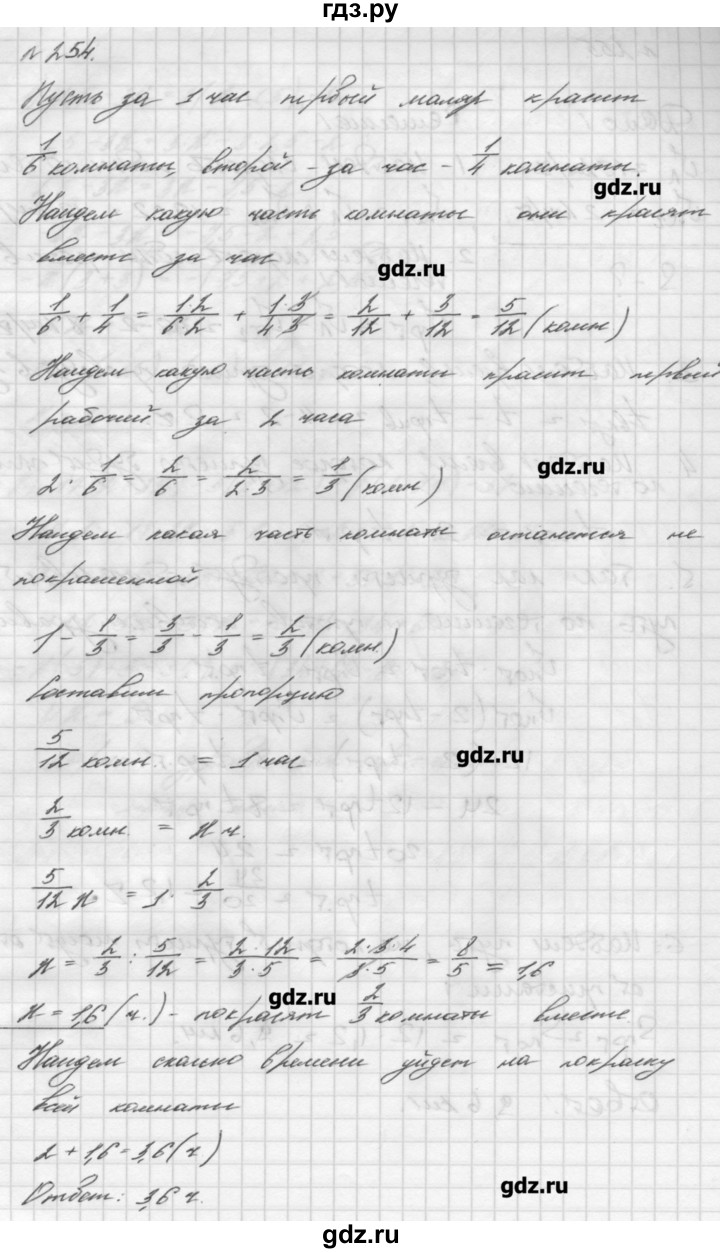 гдз.ру
№ 254.
Пусть за 1 час первый маляр красит
1/6 комнаты, второй - за час - 1/4 комнаты.
gdz.ru
Найдем какую часть комнаты они красят
вместе за час
gdz.ru
1/6 + 1/4 = 1·2/6·2 + 1·3/4·3 = 2/12 + 3/12 = 5/12 (комн)
Найдем какую часть комнаты красит первый
рабочий за 2 часа
gdz.ru
2 · 1/6 = 2/6 = 2/2·3 = 1/3 (комн)
Найдем какая часть комнаты останется не
покрашенной
1 - 1/3 = 3/3 - 1/3 = 2/3 (комн.)
Составим пропорцию
5/12 комн. = 1 час
gdz.ru
2/3 комн. = x ч.
5/12 x = 1 · 2/3
x = 2/3 : 5/12 = 2·12/3·5 = 2·3·4/3·5 = 8/5 = 1,6
gdz.ru
x = 1,6 (ч.) - покрасят 2/3 комнаты вместе
Найдем сколько времени уйдет на покраску
всей комнаты
2 + 1,6 = 3,6 (ч)
gdz.ru
Ответ: 3,6 ч.
gdz.ru